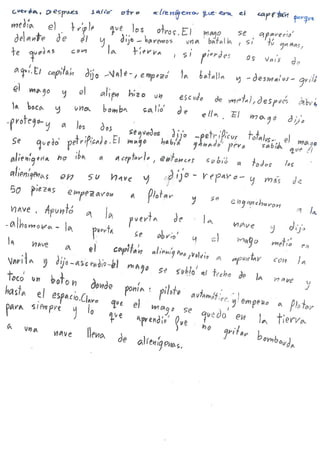 cuerda. Despues salió otro alienígena que era el capitán porque
media el triple que los otros. El mago se apareció
delante de él y dijo - haremos una batalla, si tú ganas,
te quedas con la tierra, si pierdes os vais de
aquí. El capitán dijo - Vale -, empezó la batalla y - desmaior - gritó
el mago y el alien hizo un escudo de metal, después abrió
la boca y una bomba salió de ella. El mago dijo
- protego - y a los dos segundos dijo - petrificus totalus - el mago
Se quedó petrificado. El mago había ganado pero sabía que el
alienígena no iba a aceptarlo, entonces subió a todos los
alienígenas en su nave y dijo - reparo - y más de
50 piezas empezaron a flotar y se engancharon a la
nave. Apuntó a la puerta de la nave y dijo
- alhomora - la puerta se abrió y el mago metió en
la nave a el capitán alienígena, volvió a apuntar con la
varita y dijo - ascendio - el mago se subió al techo de la nave y
tocó un boton donde ponía: piloto automático, y empezo a flotar
hasta el espacio. Claro que el mago se quedó en la tierra
para siempre y lo que aprendió fue no gritar bombarda
a una nave llena de alienígenas.